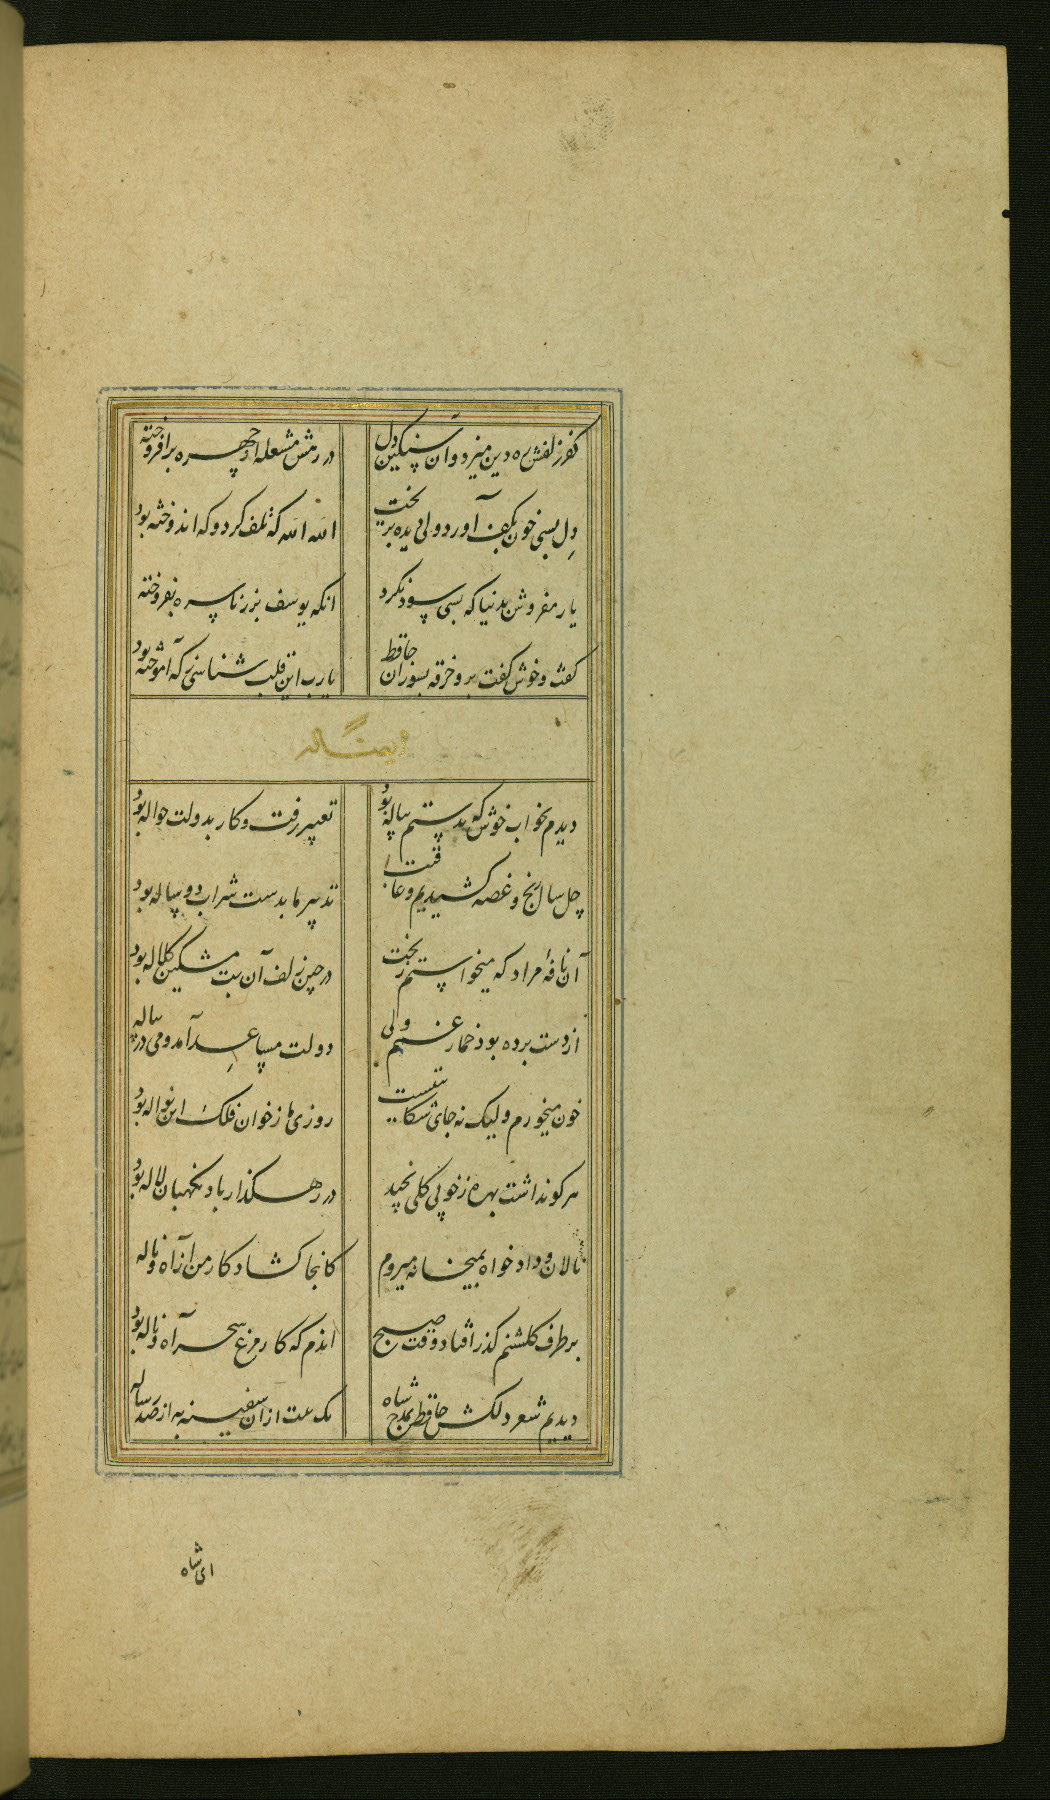 کفر زلفش ره دین میزد و آن سنگین دل
در رهش مشعله از چهره برافروخته
دل بسی خون بکف آورد ولی دیده بریخت
الله الله که تلف کرد و که اندوخته بود
یار مفروش بدنیا که بسی سود نکرد
انکه یوسف بزر ناسره بفروخته
گفت و خوش گفت برو خرقه بسوزان حافظ
یارب این قلب شناسی ز که آموخته بود
ایضا له
دیدم بخواب خوش که بدستم پیاله بود
تعبیر رفت و کار بدولت حواله بود
چل سال رنج و غصه کشیدیم و عاقبت
تدبیر ما بدست شراب دو ساله بود
آن نافۀ مراد که میخواستم ز بخت
در چین زلف آن بت مشکین کلاله بود
از دست برده بود خمار غمم ولی
دولت مساعد آمد و می در پیاله
خون میخورم ولیک نه جای شکایتست
روزی ما ز خوان فلک این نواله بود
هر کو نداشت بهره ز خوبی گلی نچید
در رهگذار باد نگهبان لاله بود
نالان و دادخواه بمیخانه میروم
کانجا گشاد کار من از آه و ناله
بر طرف گلشنم گذر افتاد وقت صبح
اندم که کار مرغ سحر آه و ناله بود
دیدیم شعر دلکش حافظ بمدح شاه
یک بیت ازان سفینه به از صد رساله
ای شاه